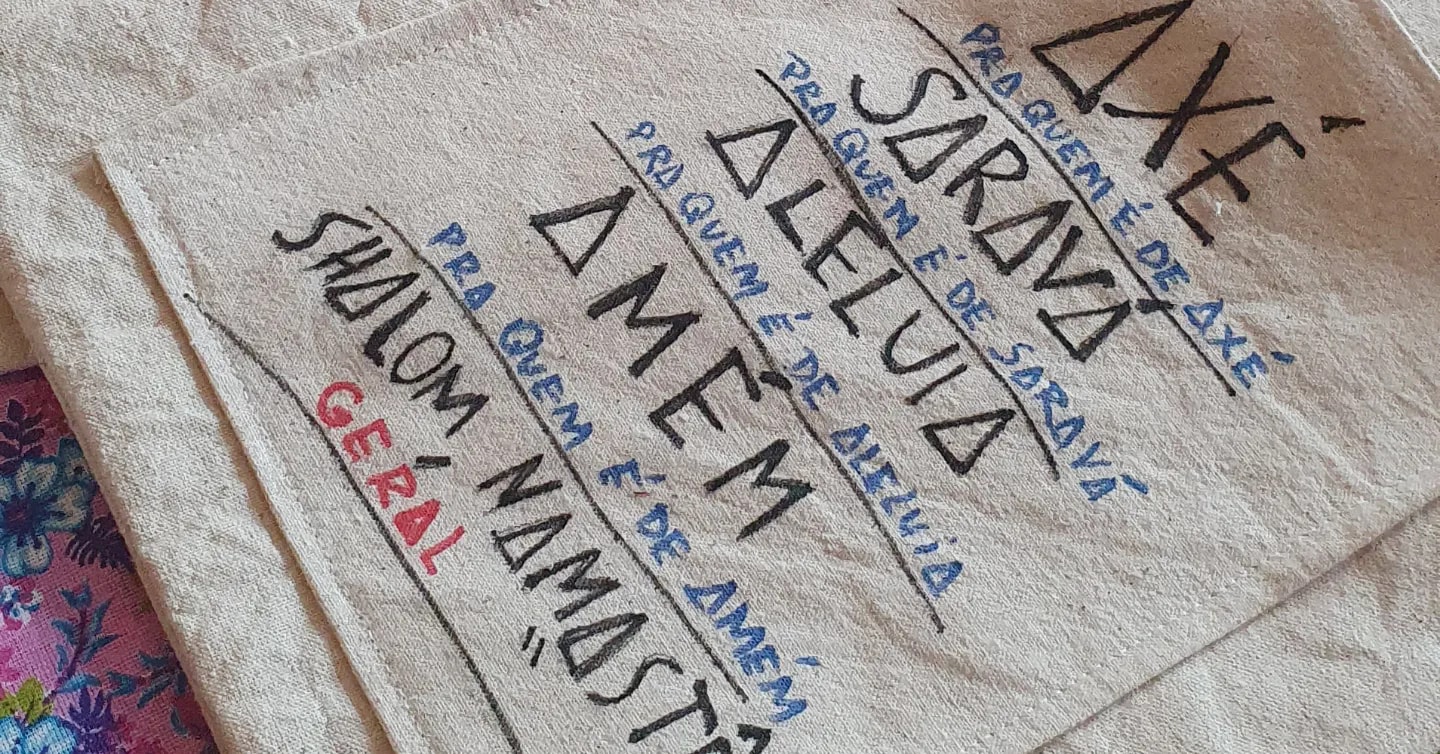 AXÉ
PRA QUEM É DE AXÉ
SARAVÁ
PRA QUEM É DE SARAVÁ
ALELUIA
PRA QUEM É DE ALELUIA
AMÉM
PRA QUEM É DE AMÉM
SHALOM NAMASTÊ
GERAL "